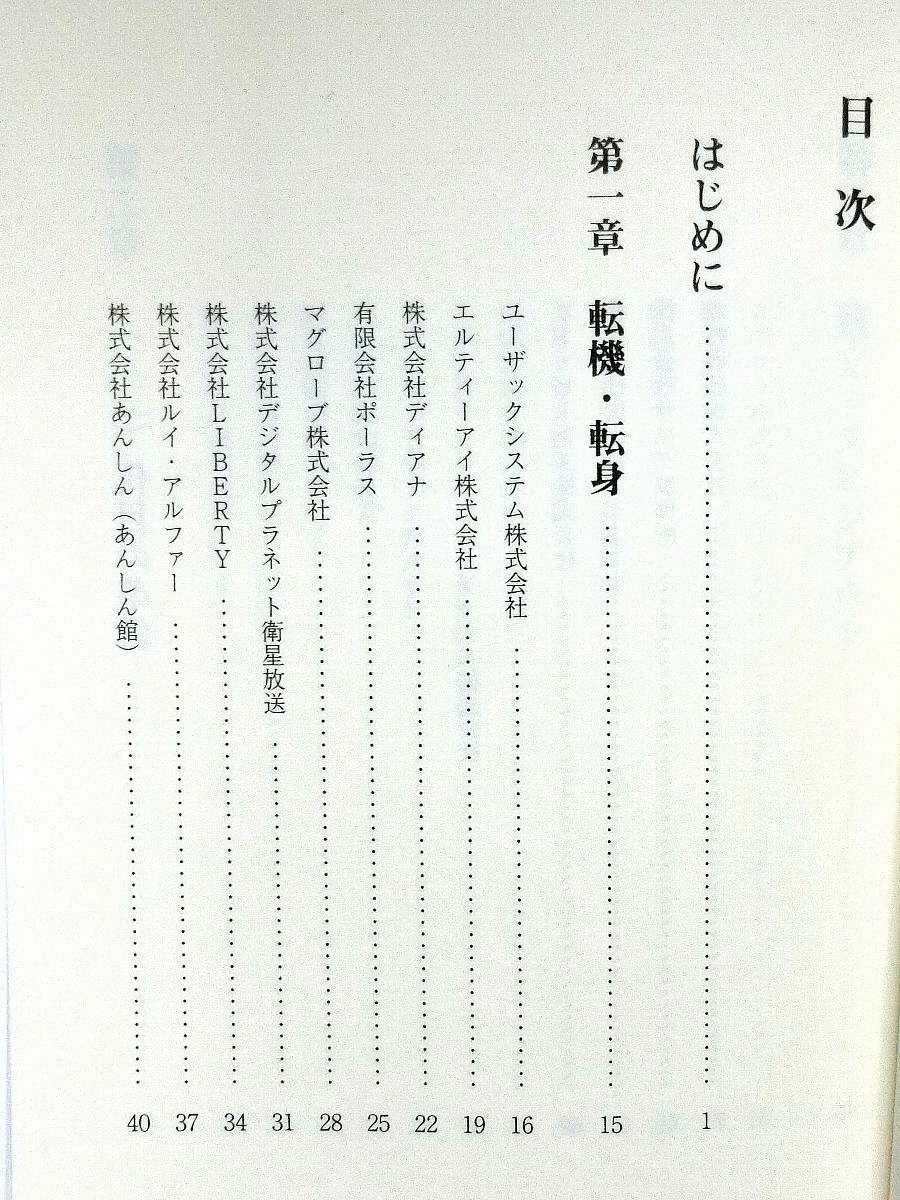 目次
はじめに……………………1
第一章　転機・転身……………………15
ユーザックシステム株式会社……………………16
エルティーアイ株式会社……………………19
株式会社ディアナ……………………22
有限会社ポーラス……………………25
マグローブ株式会社……………………28
株式会社デジタルプラネット衛星放送……………………31
株式会社LIBERTY……………………34
株式会社ルイ・アルファー……………………37
株式会社あんしん（あんしん館）……………………40